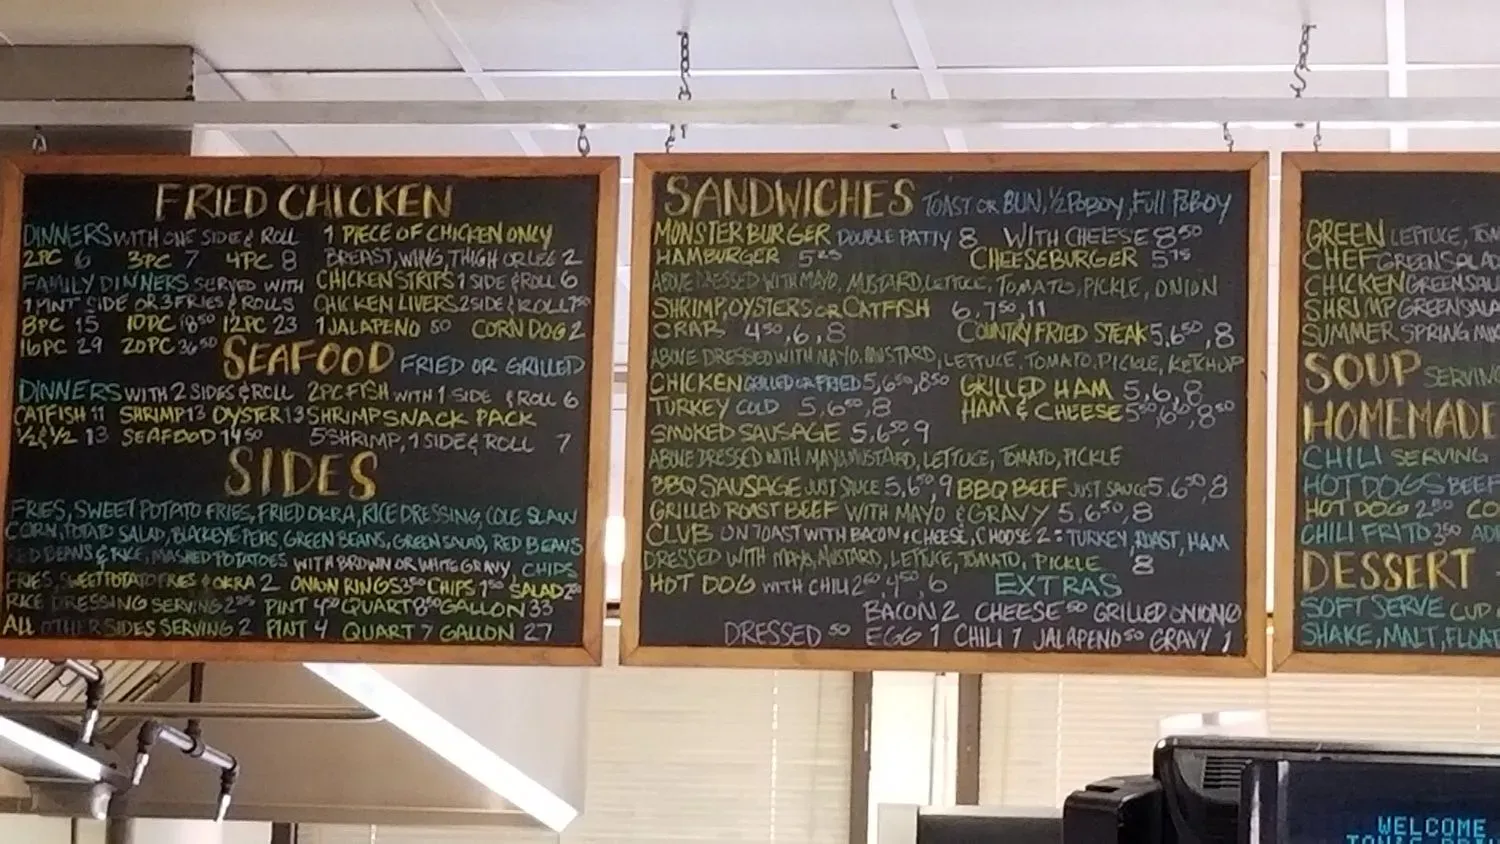 FRIED CHICKEN
DINNERS WITH ONE SIDE & ROLL 1 PIECE OF CHICKEN ONLY
2PC 6 3PC 7 4PC 8 BREAST, WING, THIGH OR LEG 2
FAMILY DINNERS SERVED WITH CHICKEN STRIPS 1 SIDE & ROLL 6
1 PINT SIDE OR 3 FRIES & ROLLS CHICKEN LIVERS 2 SIDE & ROLL 7 50
8PC 15 10PC 18 50 12PC 23 1 JALAPENO 50 CORN DOG 2
16PC 29 20PC 36 50
SEAFOOD FRIED OR GRILLED
DINNERS WITH 2 SIDES & ROLL 2PC FISH WITH 1 SIDE & ROLL 6
CATFISH 11 SHRIMP 13 OYSTER 13 SHRIMP SNACK PACK
½ & ½ 13 SEAFOOD 14 50 5 SHRIMP, 1 SIDE & ROLL 7
SIDES
FRIES, SWEET POTATO FRIES, FRIED OKRA, RICE DRESSING, COLE SLAW
CORN, POTATO SALAD, BLACKEYE PEAS, GREEN BEANS, GREEN SALAD, RED BEANS
RED BEANS & RICE, MASHED POTATOES WITH BROWN OR WHITE GRAVY, CHIPS
FRIES, SWEET POTATO FRIES & OKRA 2 ONION RINGS 3 50 CHIPS 1 50 SALAD
RICE DRESSING SERVING PINT 4 50 QUART 8 50 GALLON 33
ALL OTHER SIDES SERVING 2 PINT 4 QUART 7 GALLON 27
SANDWICHES TOAST OR BUN, ½ POBOY, FULL POBOY
MONSTER BURGER DOUBLE PATTY 8 WITH CHEESE 8 50
HAMBURGER 5 25 CHEESEBURGER 5 75
ABOVE DRESSED WITH MAYO, MUSTARD, LETTUCE, TOMATO, PICKLE, ONION
SHRIMP, OYSTERS OR CATFISH 6, 7 50, 11
CRAB 4 50, 6, 8 COUNTRY FRIED STEAK 5, 6 50, 8
ABOVE DRESSED WITH MAYO, MUSTARD, LETTUCE, TOMATO, PICKLE, KETCHUP
CHICKEN GRILLED OR FRIED 5, 6 50, 8 50 GRILLED HAM 5, 6, 8
TURKEY COLD 5, 6 50, 8 HAM & CHEESE 5 50, 8 50
SMOKED SAUSAGE 5, 6 50, 9
ABOVE DRESSED WITH MAYO, MUSTARD, LETTUCE, TOMATO, PICKLE
BBQ SAUSAGE JUST SAUCE 5, 6 50, 9 BBQ BEEF JUST SAUCE 5, 6 50, 8
GRILLED ROAST BEEF WITH MAYO & GRAVY 5, 6 50, 8
CLUB ON TOAST WITH BACON & CHEESE, CHOOSE 2: TURKEY, ROAST, HAM
DRESSED WITH MAYO, MUSTARD, LETTUCE, TOMATO, PICKLE 8
HOT DOG WITH CHILI 2 50, 4 50, 6 EXTRAS
BACON 2 CHEESE 50 GRILLED ONION
DRESSED 50 EGG 1 CHILI 1 JALAPENO 50 GRAVY 1
GREEN LETTUCE, TOM
CHEF GREEN SALAD
CHICKEN GREEN SAL
SHRIMP GREEN SALA
SUMMER SPRING MI
SOUP SERVING
HOMEMADE
CHILI SERVING
HOT DOGS BEEF
HOT DOG 2 50 CO
CHILI FRITO 3 50 AD
DESSERT
SOFT SERVE CUP
SHAKE, MALT, FLOAT
WELCOME